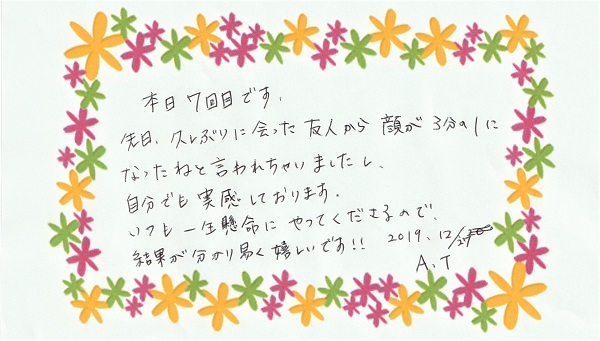 本日7回目です.
先日、久しぶりに会った友人から 顔が 3分の1に
なったねと言われちゃいましたし、
自分でも 実感しております.
いつも 一生懸命に やってくださるので、
結果が分かり易く嬉しいです!!
2019. 12/27
A.T